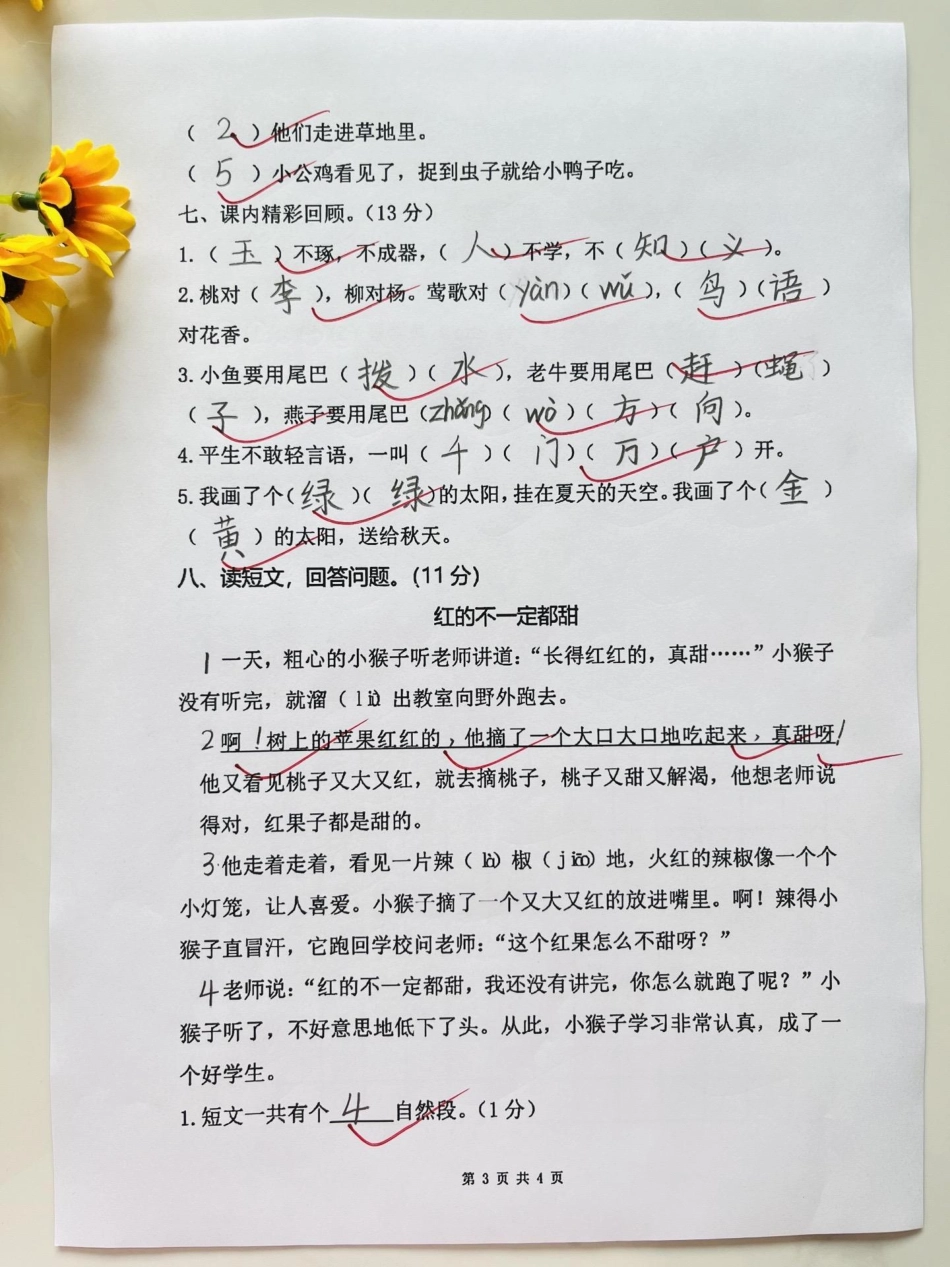 （ 2 ）他们走进草地里。
（ 5 ）小公鸡看见了，捉到虫子就给小鸭子吃。
七、课内精彩回顾。（13 分）
1.（ 玉 ）不琢，不成器，（ 人 ）不学，不（ 知 ）（ 义 ）。
2.桃对（ 李 ），柳对杨。莺歌对（ yàn ）（ wǔ ），（ 鸟 ）（ 语 ）
对花香。
3.小鱼要用尾巴（ 拨 ）（ 水 ），老牛要用尾巴（ 赶 ）（ 蝇 ）
（ 子 ），燕子要用尾巴（zhǎng）（ wò ）（ 方 ）（ 向 ）。
4.平生不敢轻言语，一叫（ 千 ）（ 门 ）（ 万 ）（ 户 ）开。
5.我画了个（ 绿 ）（ 绿 ）的太阳，挂在夏天的天空。我画了个（ 金 ）
（ 黄 ）的太阳，送给秋天。
八、读短文，回答问题。（11 分）
红的不一定都甜
1 一天，粗心的小猴子听老师讲道：“长得红红的，真甜……”小猴子
没有听完，就溜（ liū）出教室向野外跑去。
2 啊！树上的苹果红红的，他摘了一个大口大口地吃起来，真甜呀！
他又看见桃子又大又红，就去摘桃子，桃子又甜又解渴，他想老师说
得对，红果子都是甜的。
3 他走着走着，看见一片辣（là）椒（jiāo）地，火红的辣椒像一个个
小灯笼，让人喜爱。小猴子摘了一个又大又红的放进嘴里。啊！辣得小
猴子直冒汗，它跑回学校问老师：“这个红果怎么不甜呀？”
4 老师说：“红的不一定都甜，我还没有讲完，你怎么就跑了呢？”小
猴子听了，不好意思地低下了头。从此，小猴子学习非常认真，成了一
个好学生。
1.短文一共有个 4 自然段。（1 分）
第 3 页 共 4 页